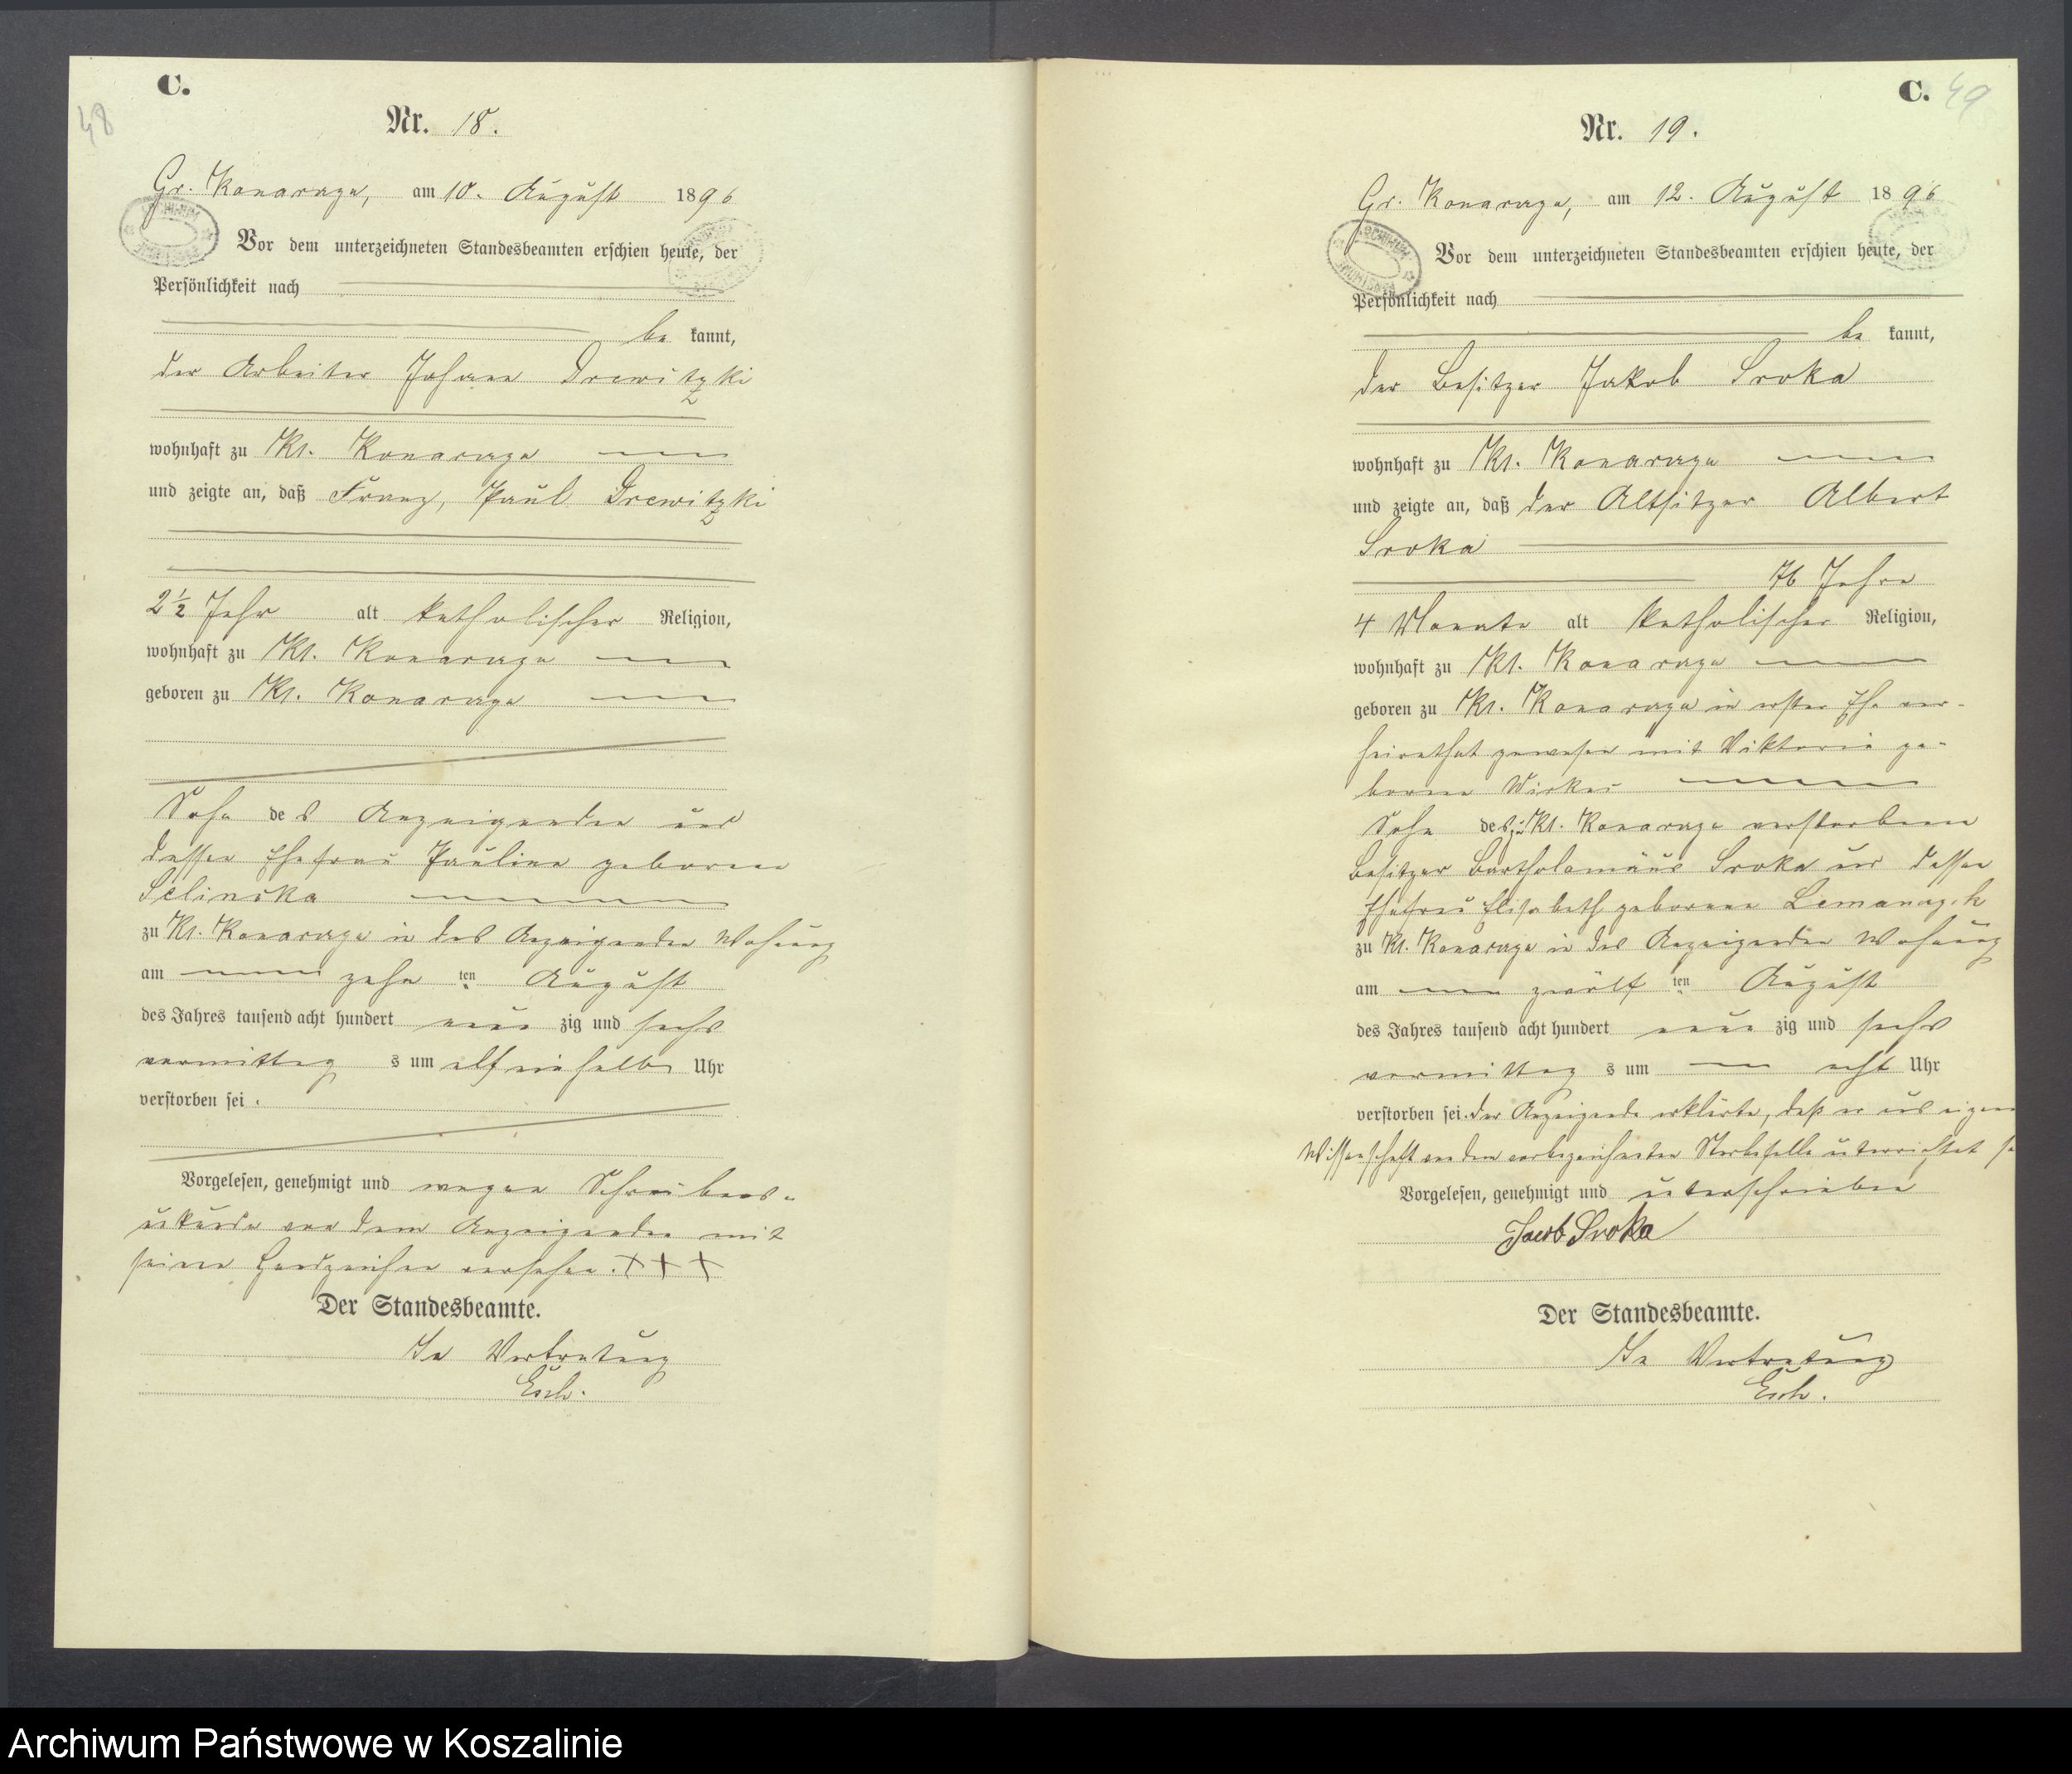 C.
48
Nr. 18.
Gr. Konarczyn, am 10. August 1896
Vor dem unterzeichneten Standesbeamten erschien heute, der
Persönlichkeit nach
be kannt,
der Arbeiter Johann Drewitzki
wohnhaft zu Kl. Konarczyn
und zeigte an, daß Franz, Paul Drewitzki
2½ Jahr alt katholischer Religion,
wohnhaft zu Kl. Konarczyn
geboren zu Kl. Konarczyn
Sohn des Anzeigenden und
dessen Ehefrau Pauline geborene
Selinska
zu Kl. Konarczyn in des Anzeigenden Wohnung
am zehn ten August
des Jahres tausend acht hundert neun zig und sechs
vormittag s um elfeinhalb Uhr
verstorben sei.
Vorgelesen, genehmigt und wegen Schreibens-
unkunde von dem Anzeigenden mit
seinem Handzeichen versehen. +++
Der Standesbeamte.
In Vertretung
C. 49
Nr. 19.
Gr. Konarczyn, am 12. August 1896
Vor dem unterzeichneten Standesbeamten erschien heute, der
Persönlichkeit nach
be kannt,
der Besitzer Jakob Sroka
wohnhaft zu Kl. Konarczyn
und zeigte an, daß der Altsitzer Albert
Sroka
76 Jahre
4 Monate alt katholischer Religion,
wohnhaft zu Kl. Konarczyn
geboren zu Kl. Konarczyn in erster Ehe ver-
heirathet gewesen mit Viktoria ge-
borene Wirkus
Sohn des zu Kl. Konarczyn verstorbenen
Besitzer Bartholomäus Sroka und dessen
Ehefrau Elisabeth geborenen Lemanczyk
zu Kl. Konarczyn in des Anzeigenden Wohnung
am zwölf ten August
des Jahres tausend acht hundert neun zig und sechs
vormittag s um acht Uhr
verstorben sei. Der Anzeigende erklärte, daß er aus eigener
Wissenschaft von dem vorbezeichneten Sterbefalle unterrichtet
Vorgelesen, genehmigt und unterschrieben
Jacob Sroka
Der Standesbeamte.
In Vertretung
Archiwum Państwowe w Koszalinie